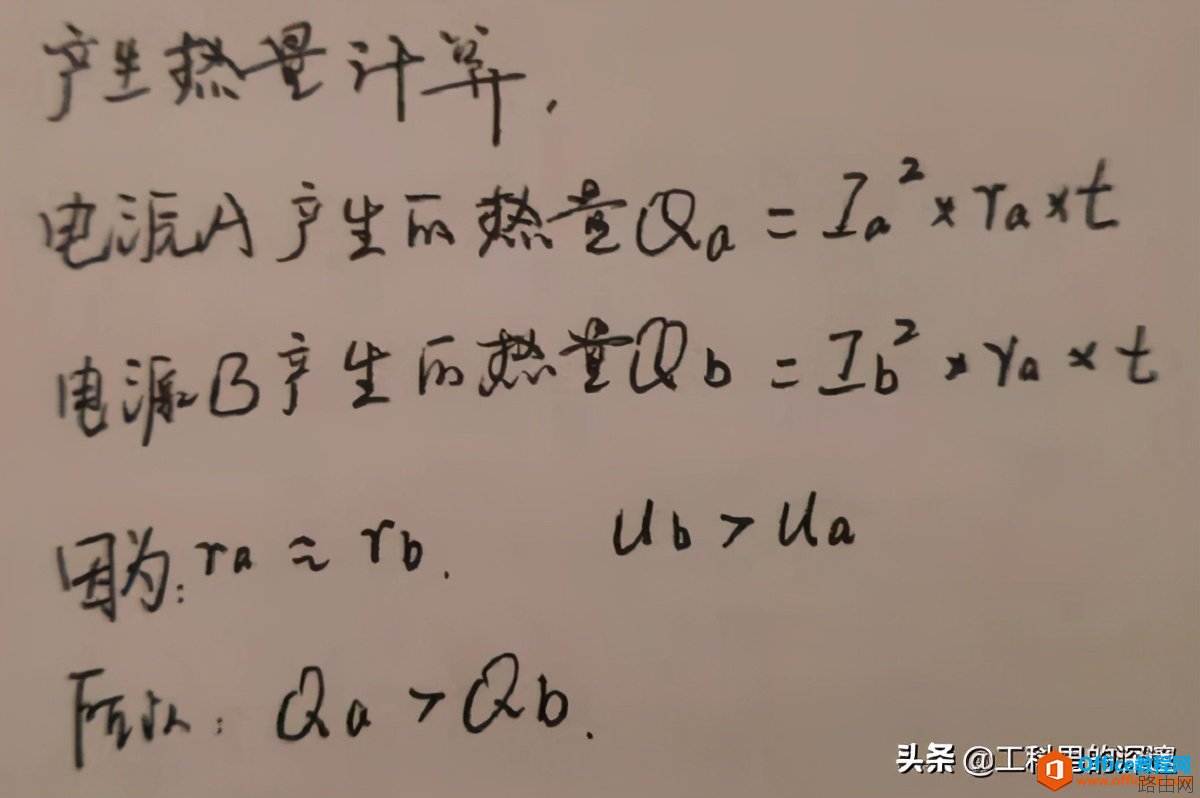 产生热量计算.
电源A产生的热量Qa = Ia² × ra × t
电源B产生的热量Qb = Ib² × ra × t
因为: ra ≈ rb. Ub > Ua
所以: Qa > Qb.
头条 @工科男的深
Office教程网
路由网